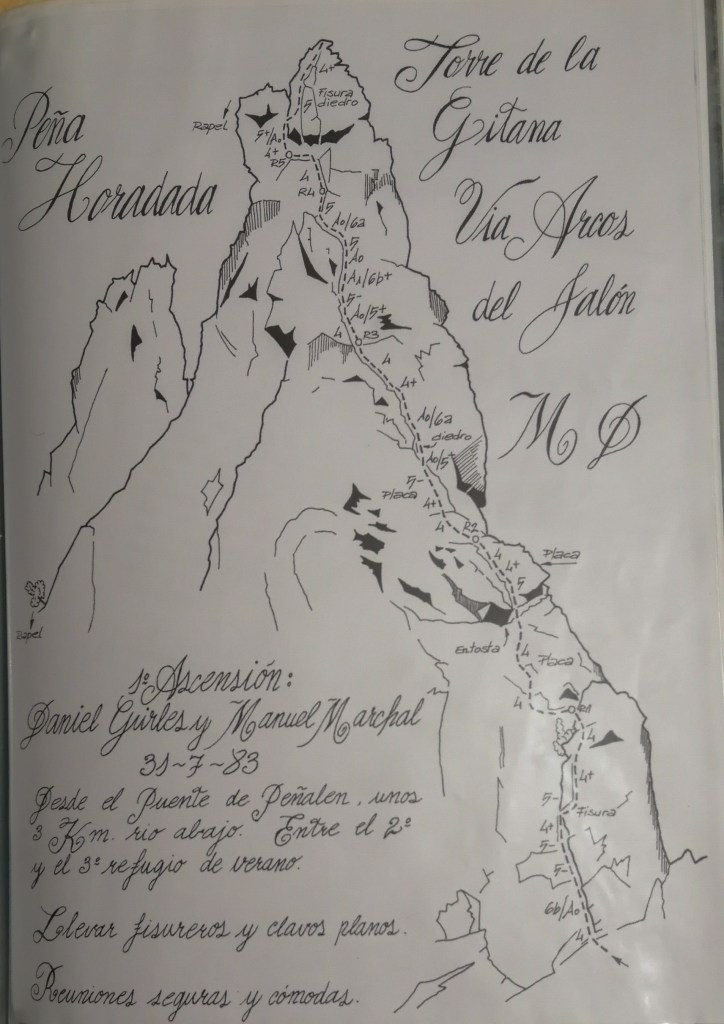 Peña
Horadada
Torre de la
Gitana
Via Arcos
del Jalón
M D
Rapel
4+
Fisura
diedro
5
5+/A0
4+
R5
4
R4
5
A0/6a
5
A0
A1/6b+
5-
A0/5+
4
R3
4
4+
A0/6a
diedro
A0/5+
5-
Placa
4+
4
R2
4
4+
5
Placa
Entosta
4
Placa
4
R1
4
4+
5-
Fisura
4+
5-
5-
6b/A0
4
Rapel
1ª Ascensión:
Daniel Gúrles y Manuel Marchal
31-7-83
Desde el Puente de Peñalen, unos
3 Km. rio abajo. Entre el 2º
y el 3º refugio de verano.
Llevar fisureros y clavos planos.
Reuniones seguras y cómodas.